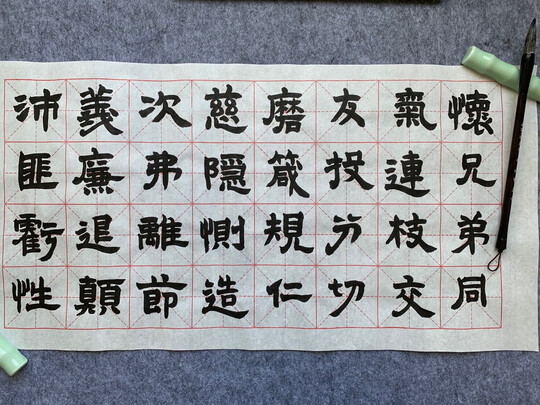 懷兄弟同
氣連枝交
友投分切
磨箴規仁
慈隱惻造
次弗離節
義廉退顛
沛匪虧性